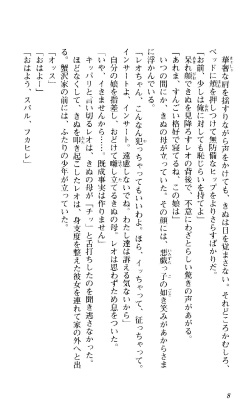 華奢な肩を揺すりながら声をかけても、きぬは目を覚まさない。それどころかむしろ、
ベッドに顔を押しつけて無防備なヒップをよりさらすばかりだ。
「お前、少しは俺に対しても恥じらいを持てよ」
呆れ顔できぬを見降ろすレオの背後で、不意にわざとらしい驚きの声があがる。
「あれま、すんごい格好で寝てるね、この娘は」
いつの間にか、きぬの母が立っていた。その顔には、悪戯っ子の如き笑み
に浮かんでいる。
「レオちゃん、こんなん犯っちゃってもいいわよ。ほら、犯っちゃって、征っちゃって。
インサートよ、インサート。遠慮しないでね、わたし達は訴える気ないから」
自分の娘を指差し、おどけて囃し立てるきぬの母。レオは思わずため息をついた。
「いや、イきませんから……。既成事実は作りません」
キッパリと言い切るレオは、きぬの母が「チッ」と舌打ちしたのを聞き逃さなかった。
ほどなくして、きぬを叩き起こしたレオは、身支度を整えた彼女を連れて家の外へと出
る。蟹沢家の前には、ふたりの少年が立っていた。
「オッス」
「おはよー」
「おはよう、スバル、フカヒレ」
8